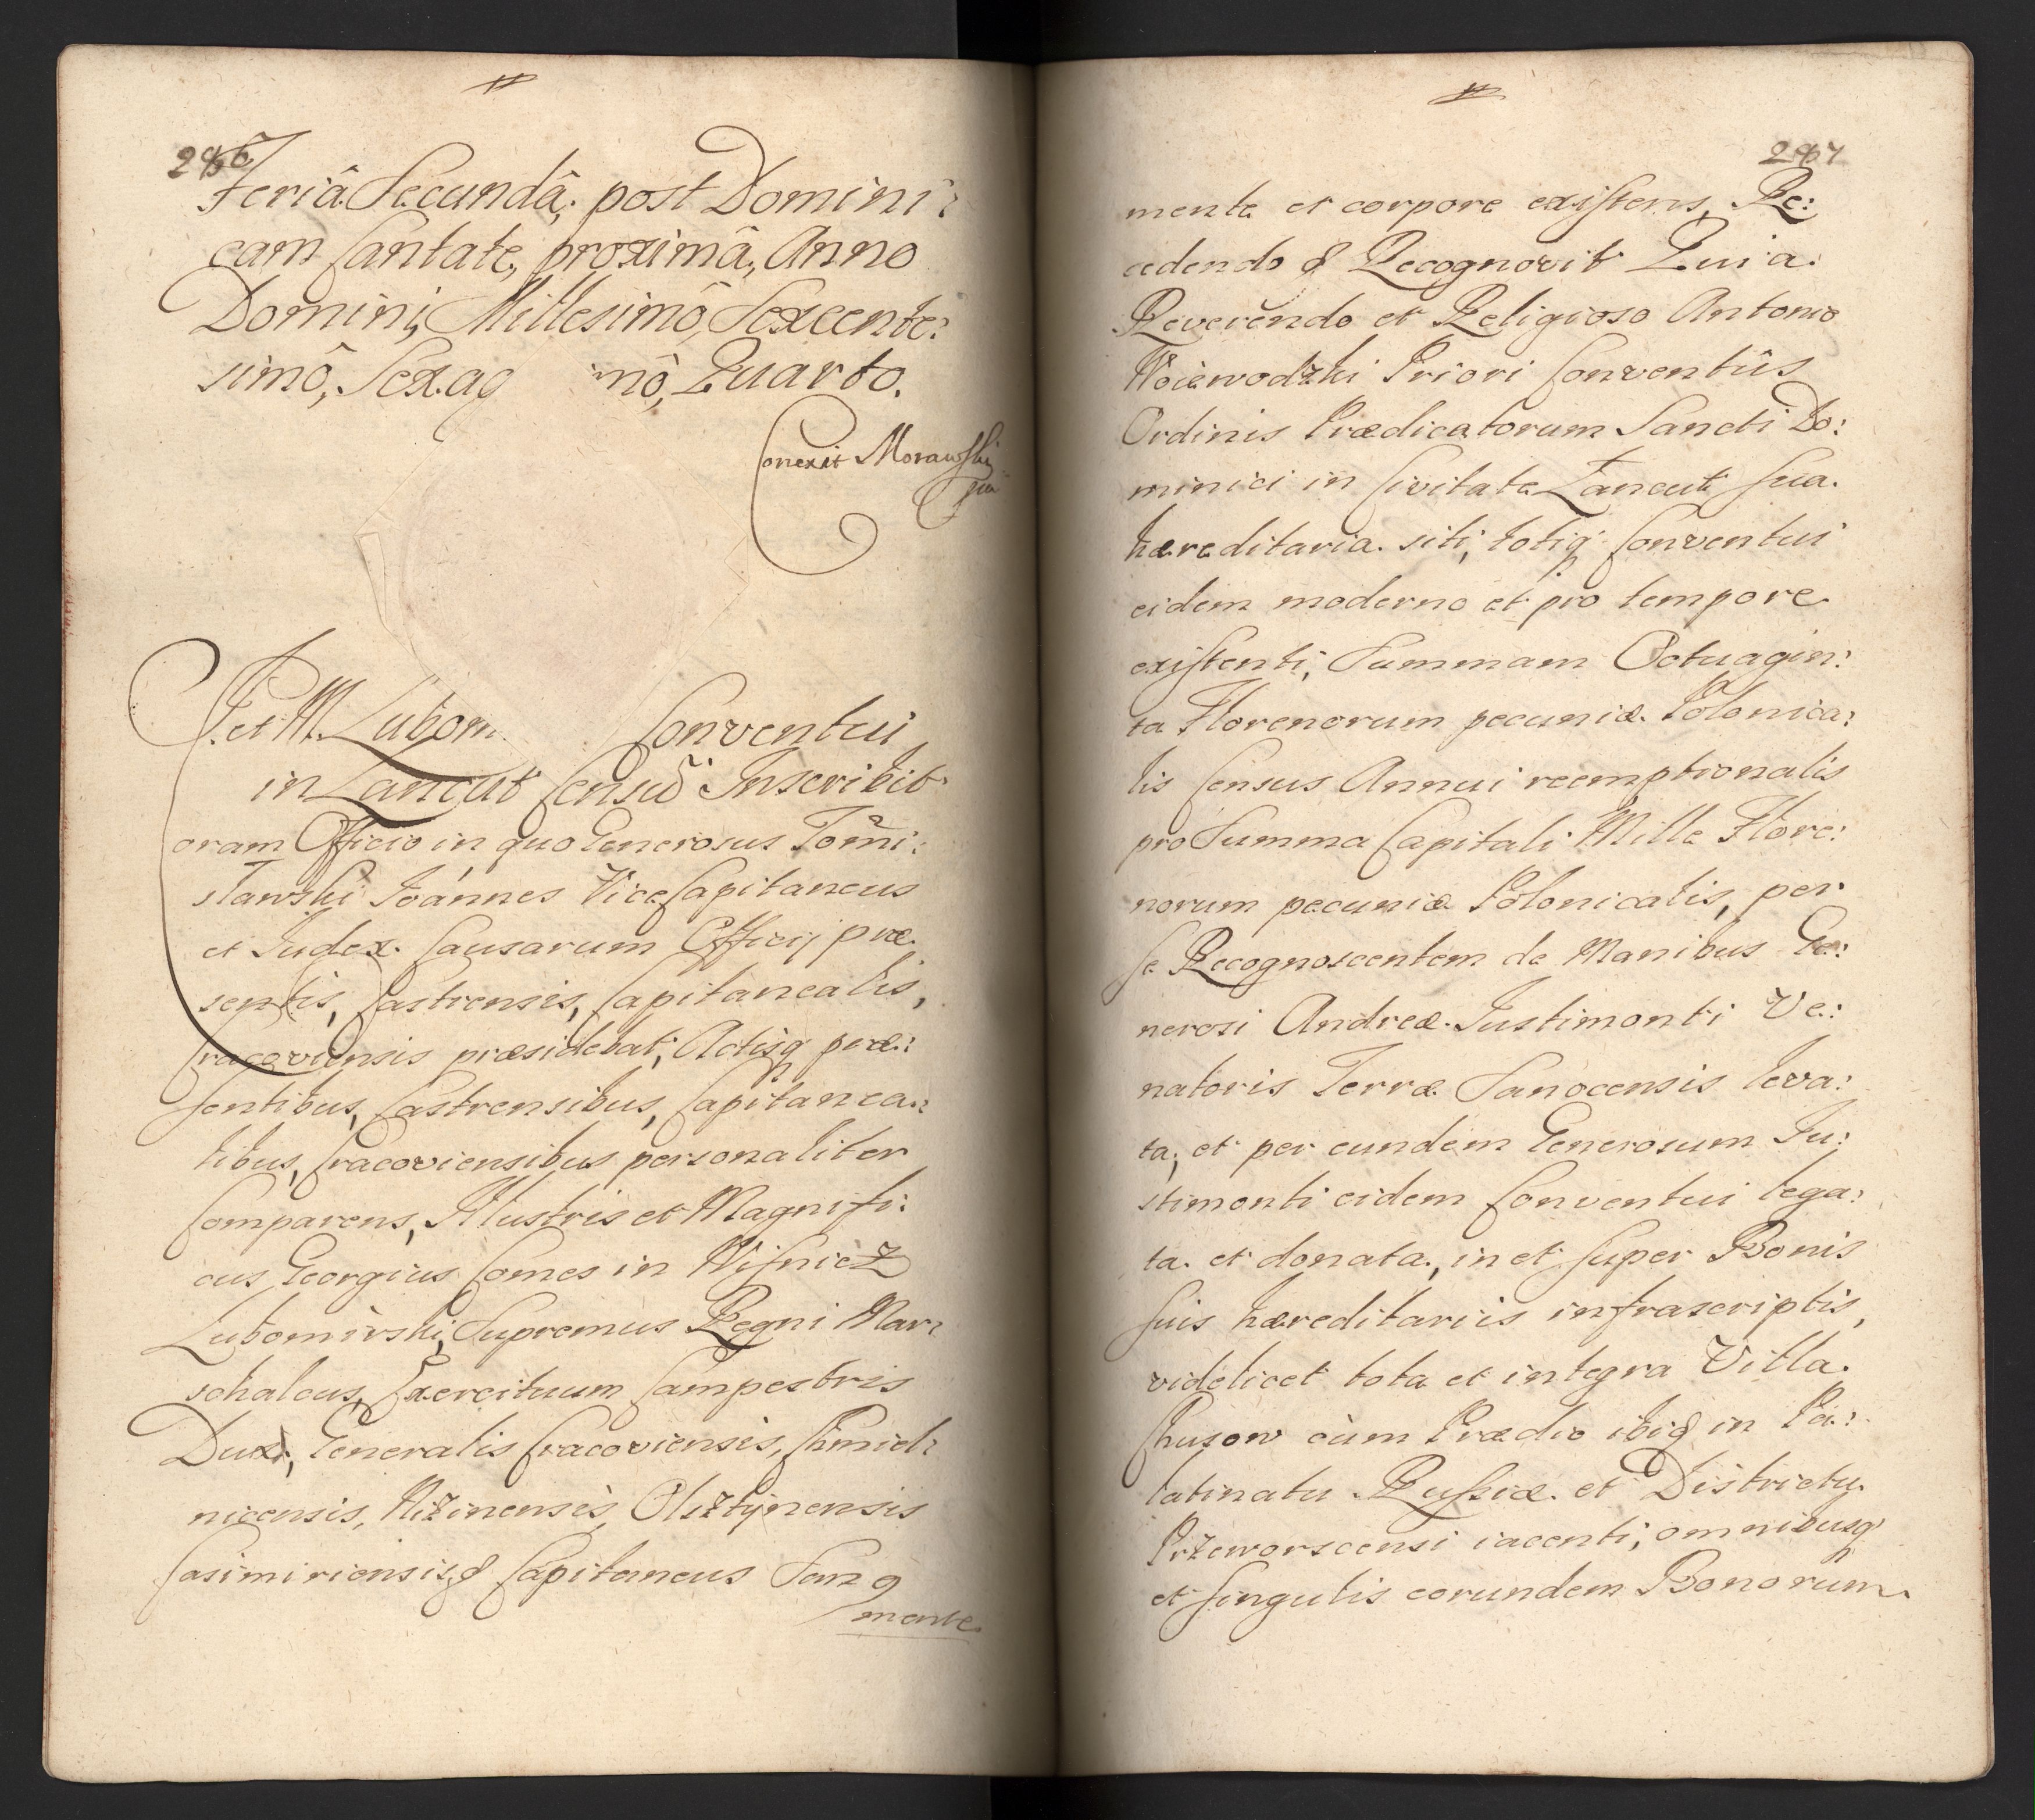 286
Feriâ Secundâ, post Domini:
cam Cantate, proximâ, Anno
Domini, Millesimô, Sexcente:
simô, Sexag mô, Quarto.
Correxit Morawski
I. et M. Lubom Conventui
in Łancut Censũ Inscribit
oram Officio in quo Generosus Tomi:
sławski Joánnes ViceCapitaneus
et Judex Causarum Officij præ
sentis, Castrensis, Capitanealis,
Cracoviensis præsidebat, Actisq præ:
sentibus, Castrensibus, Capitanea:
libus, Cracoviensibus personaliter
Comparens, Illustris et Magnifi:
cus Georgius Comes in Wisnicz
Lubomirski, Supremus Regni Mar:
schalcus, Exercituum Campestris
Dux, Generalis Cracoviensis, Chmiel:
nicensis, Niżinensis, Olsztynensis
Casimiriensisq Capitaneus Sang
mente
287
mente et corpore existens, Re:
cedendo & Recognovit Quia
Reverendo et Religioso Antonio
Woiewodzki Priori Conventûs
Ordinis Prædicatorum Sancti Do:
minici in Civitate Łancut sua
hæreditaria siti, totiq Conventui
eidem moderno et pro tempore
existenti, Summam Octuagin:
ta Florenorum pecuniæ Polonica:
lis Census Annui reemptionalis
pro Summa Capitali Mille Flore:
norum pecuniæ Polonicalis, per
se Recognoscentem de Manibus Ge:
nerosi Andreæ Justimonti Ve:
natoris Terræ Sanocensis leva:
ta, et per eundem Generosum Ju:
stimonti eidem Conventui lega:
ta et donata, in et super Bonis
suis hæreditariis infrascriptis,
videlicet tota et integra Villa
Husow cùm Prædio ibid in Pa:
latinatu Russiæ et Districtu
Przeworscensi iacenti, omnibusq
et singulis eorundem Bonorum